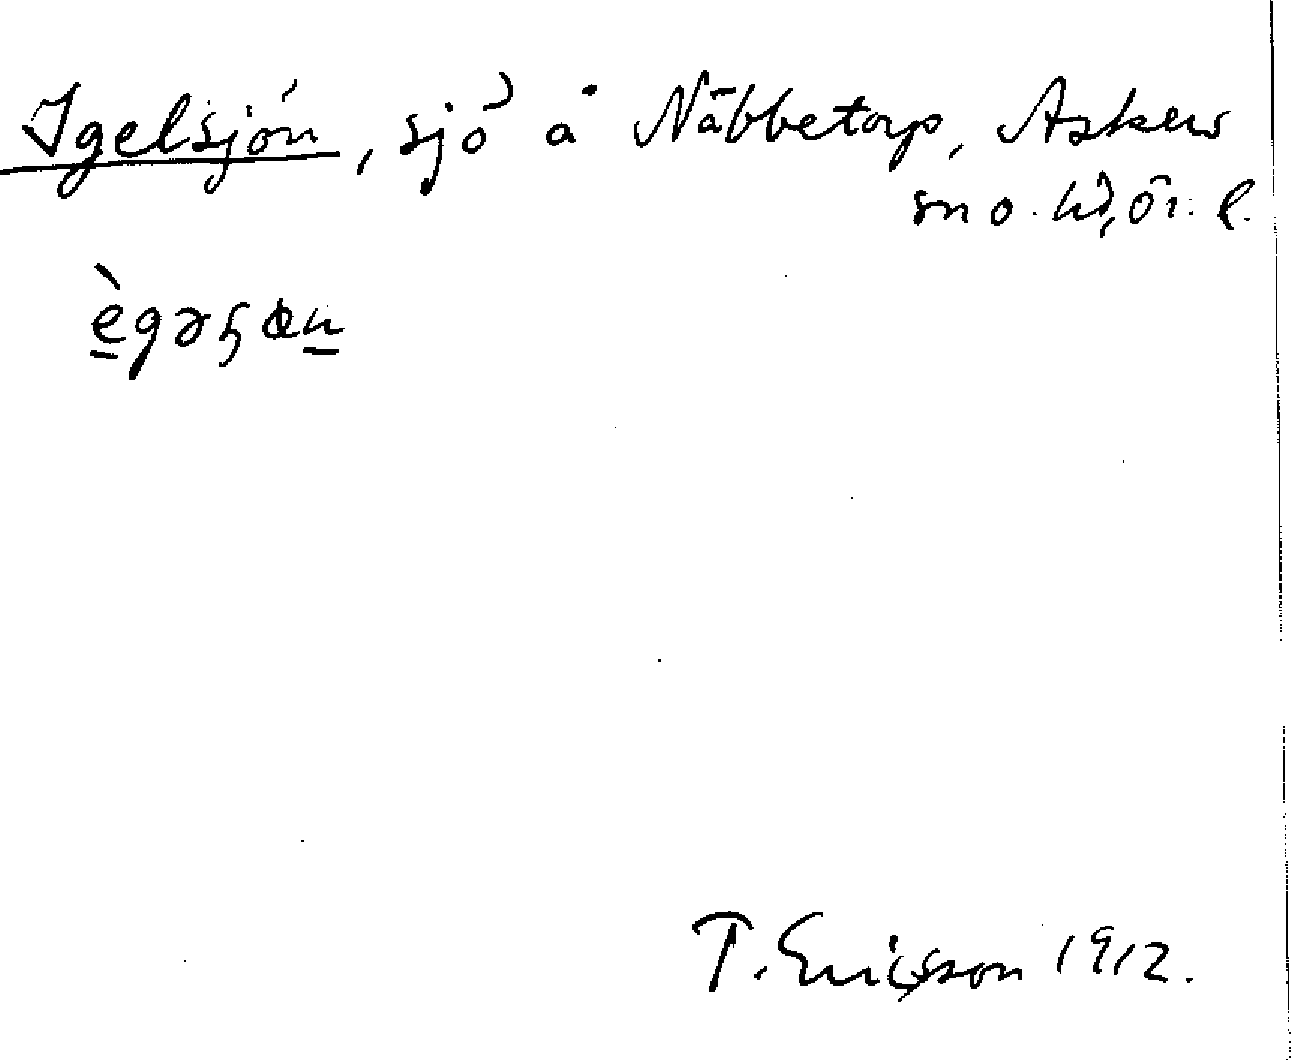 Igelsjön, sjö å Näbbetorp, Asker
sn o. hd, Ör. l.
ègəɧøn
T. Ericsson 1912.